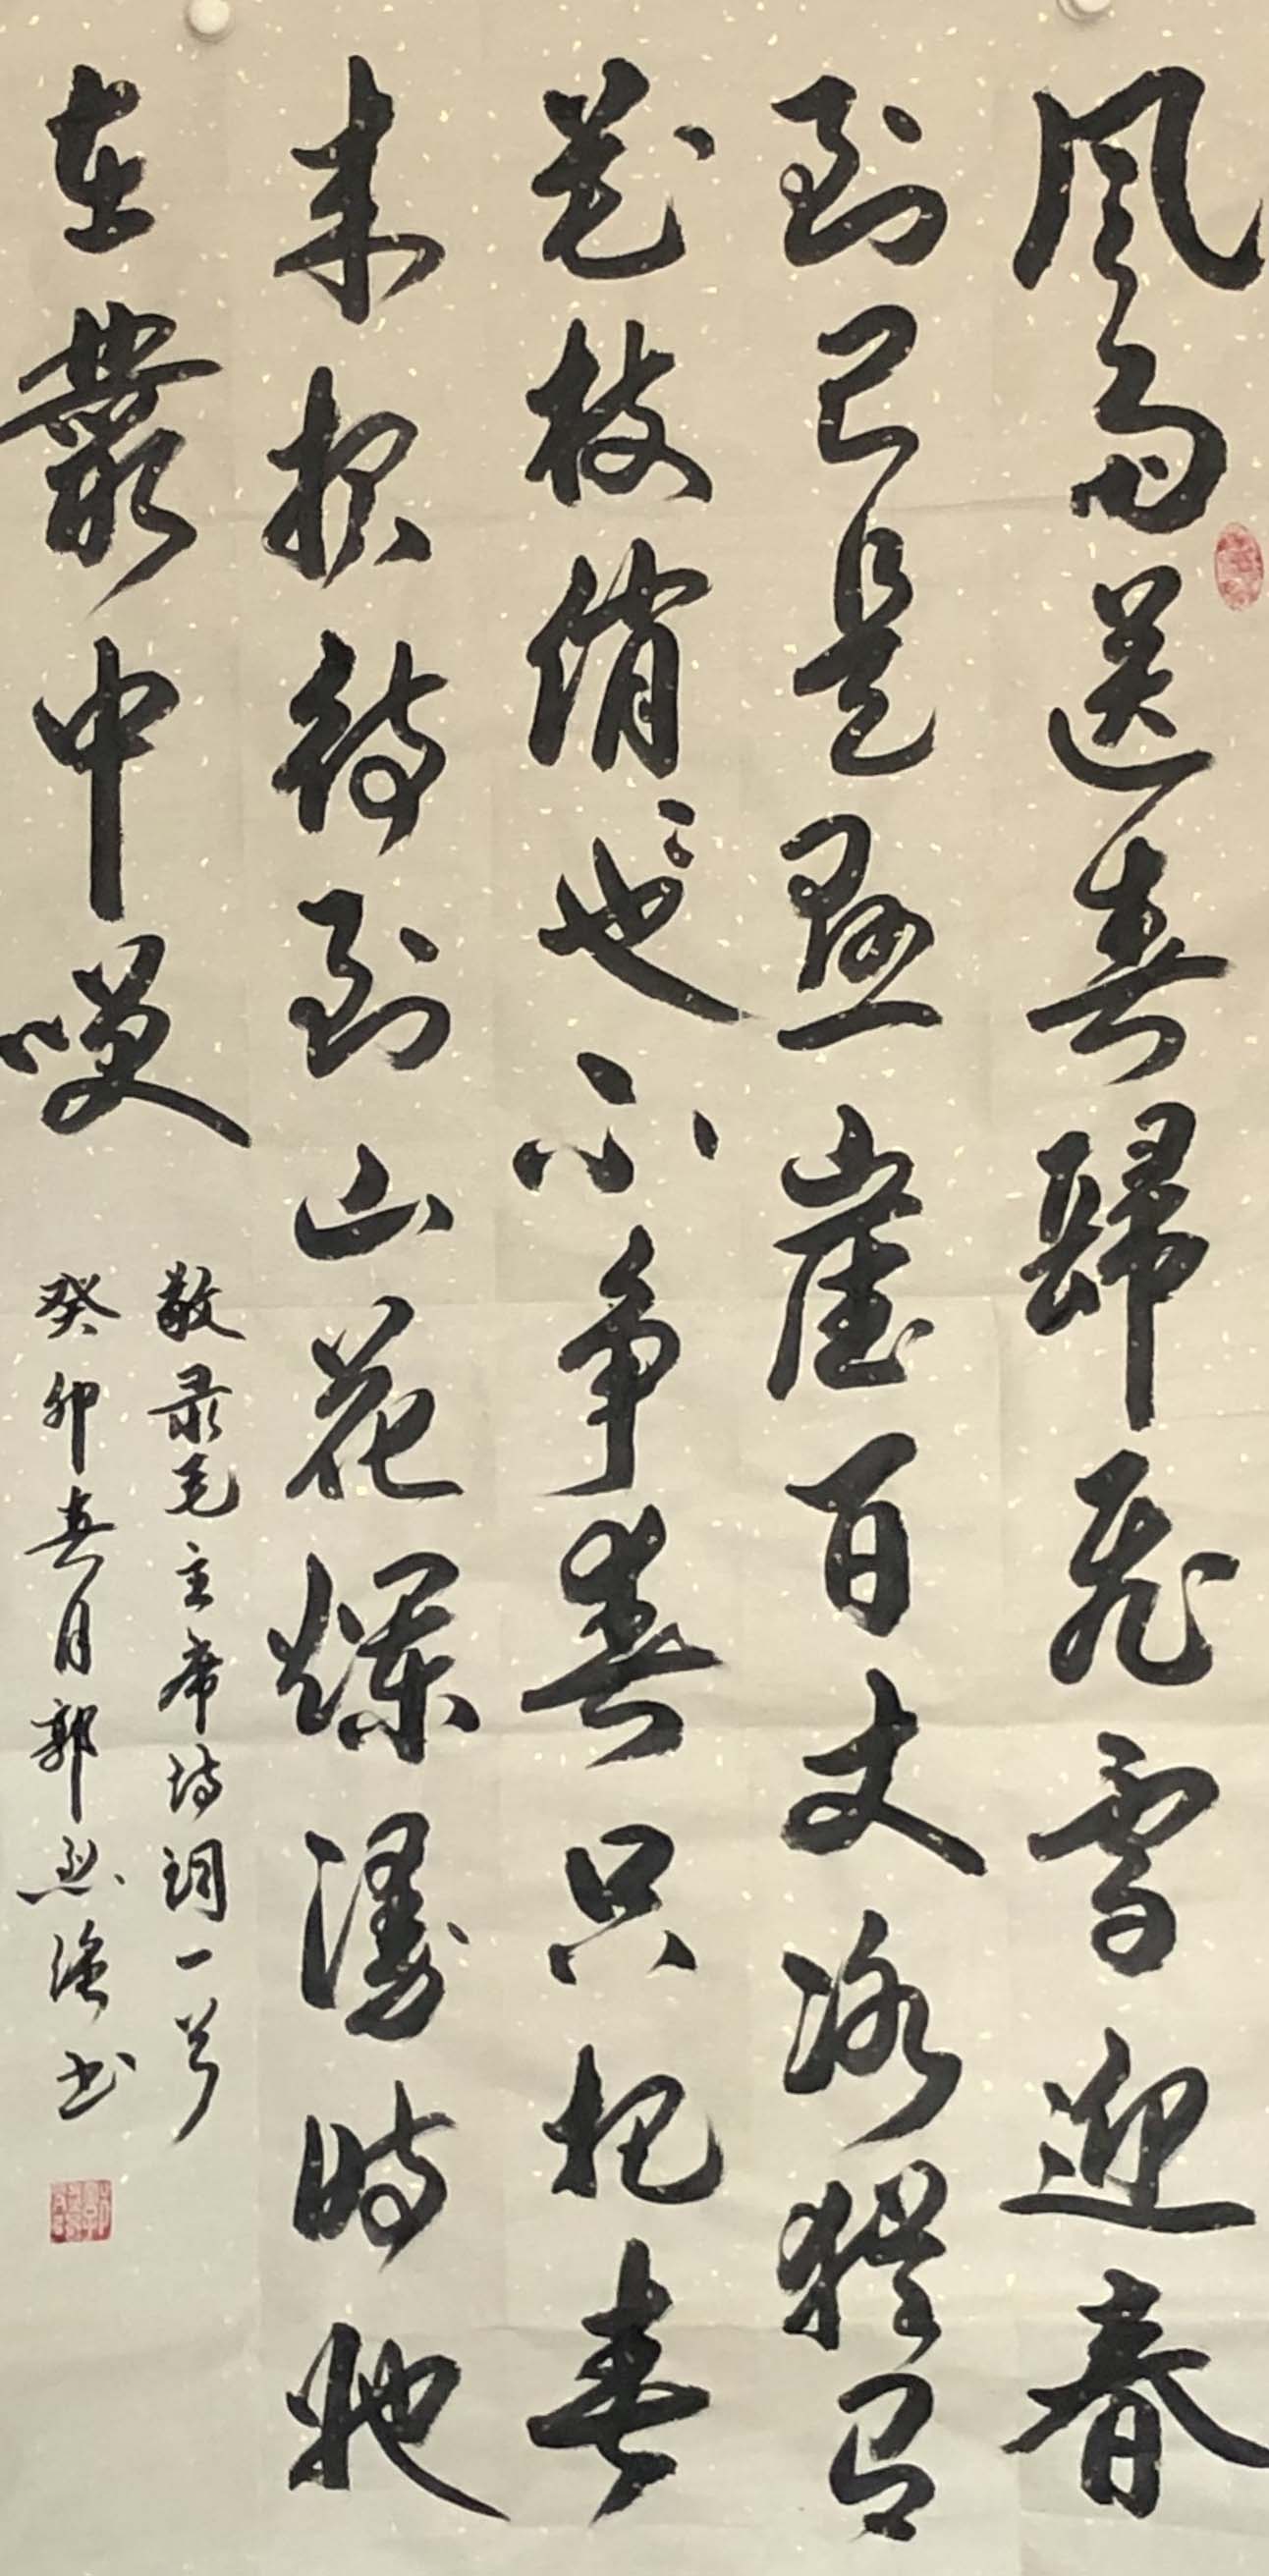 风雨送春歸飛雪迎春
到已是懸崖百丈冰猶有
花枝俏々也不争春只把春
来报待到山花爛漫時她
在叢中笑
敬录毛主席诗词一首
癸卯春月郭书